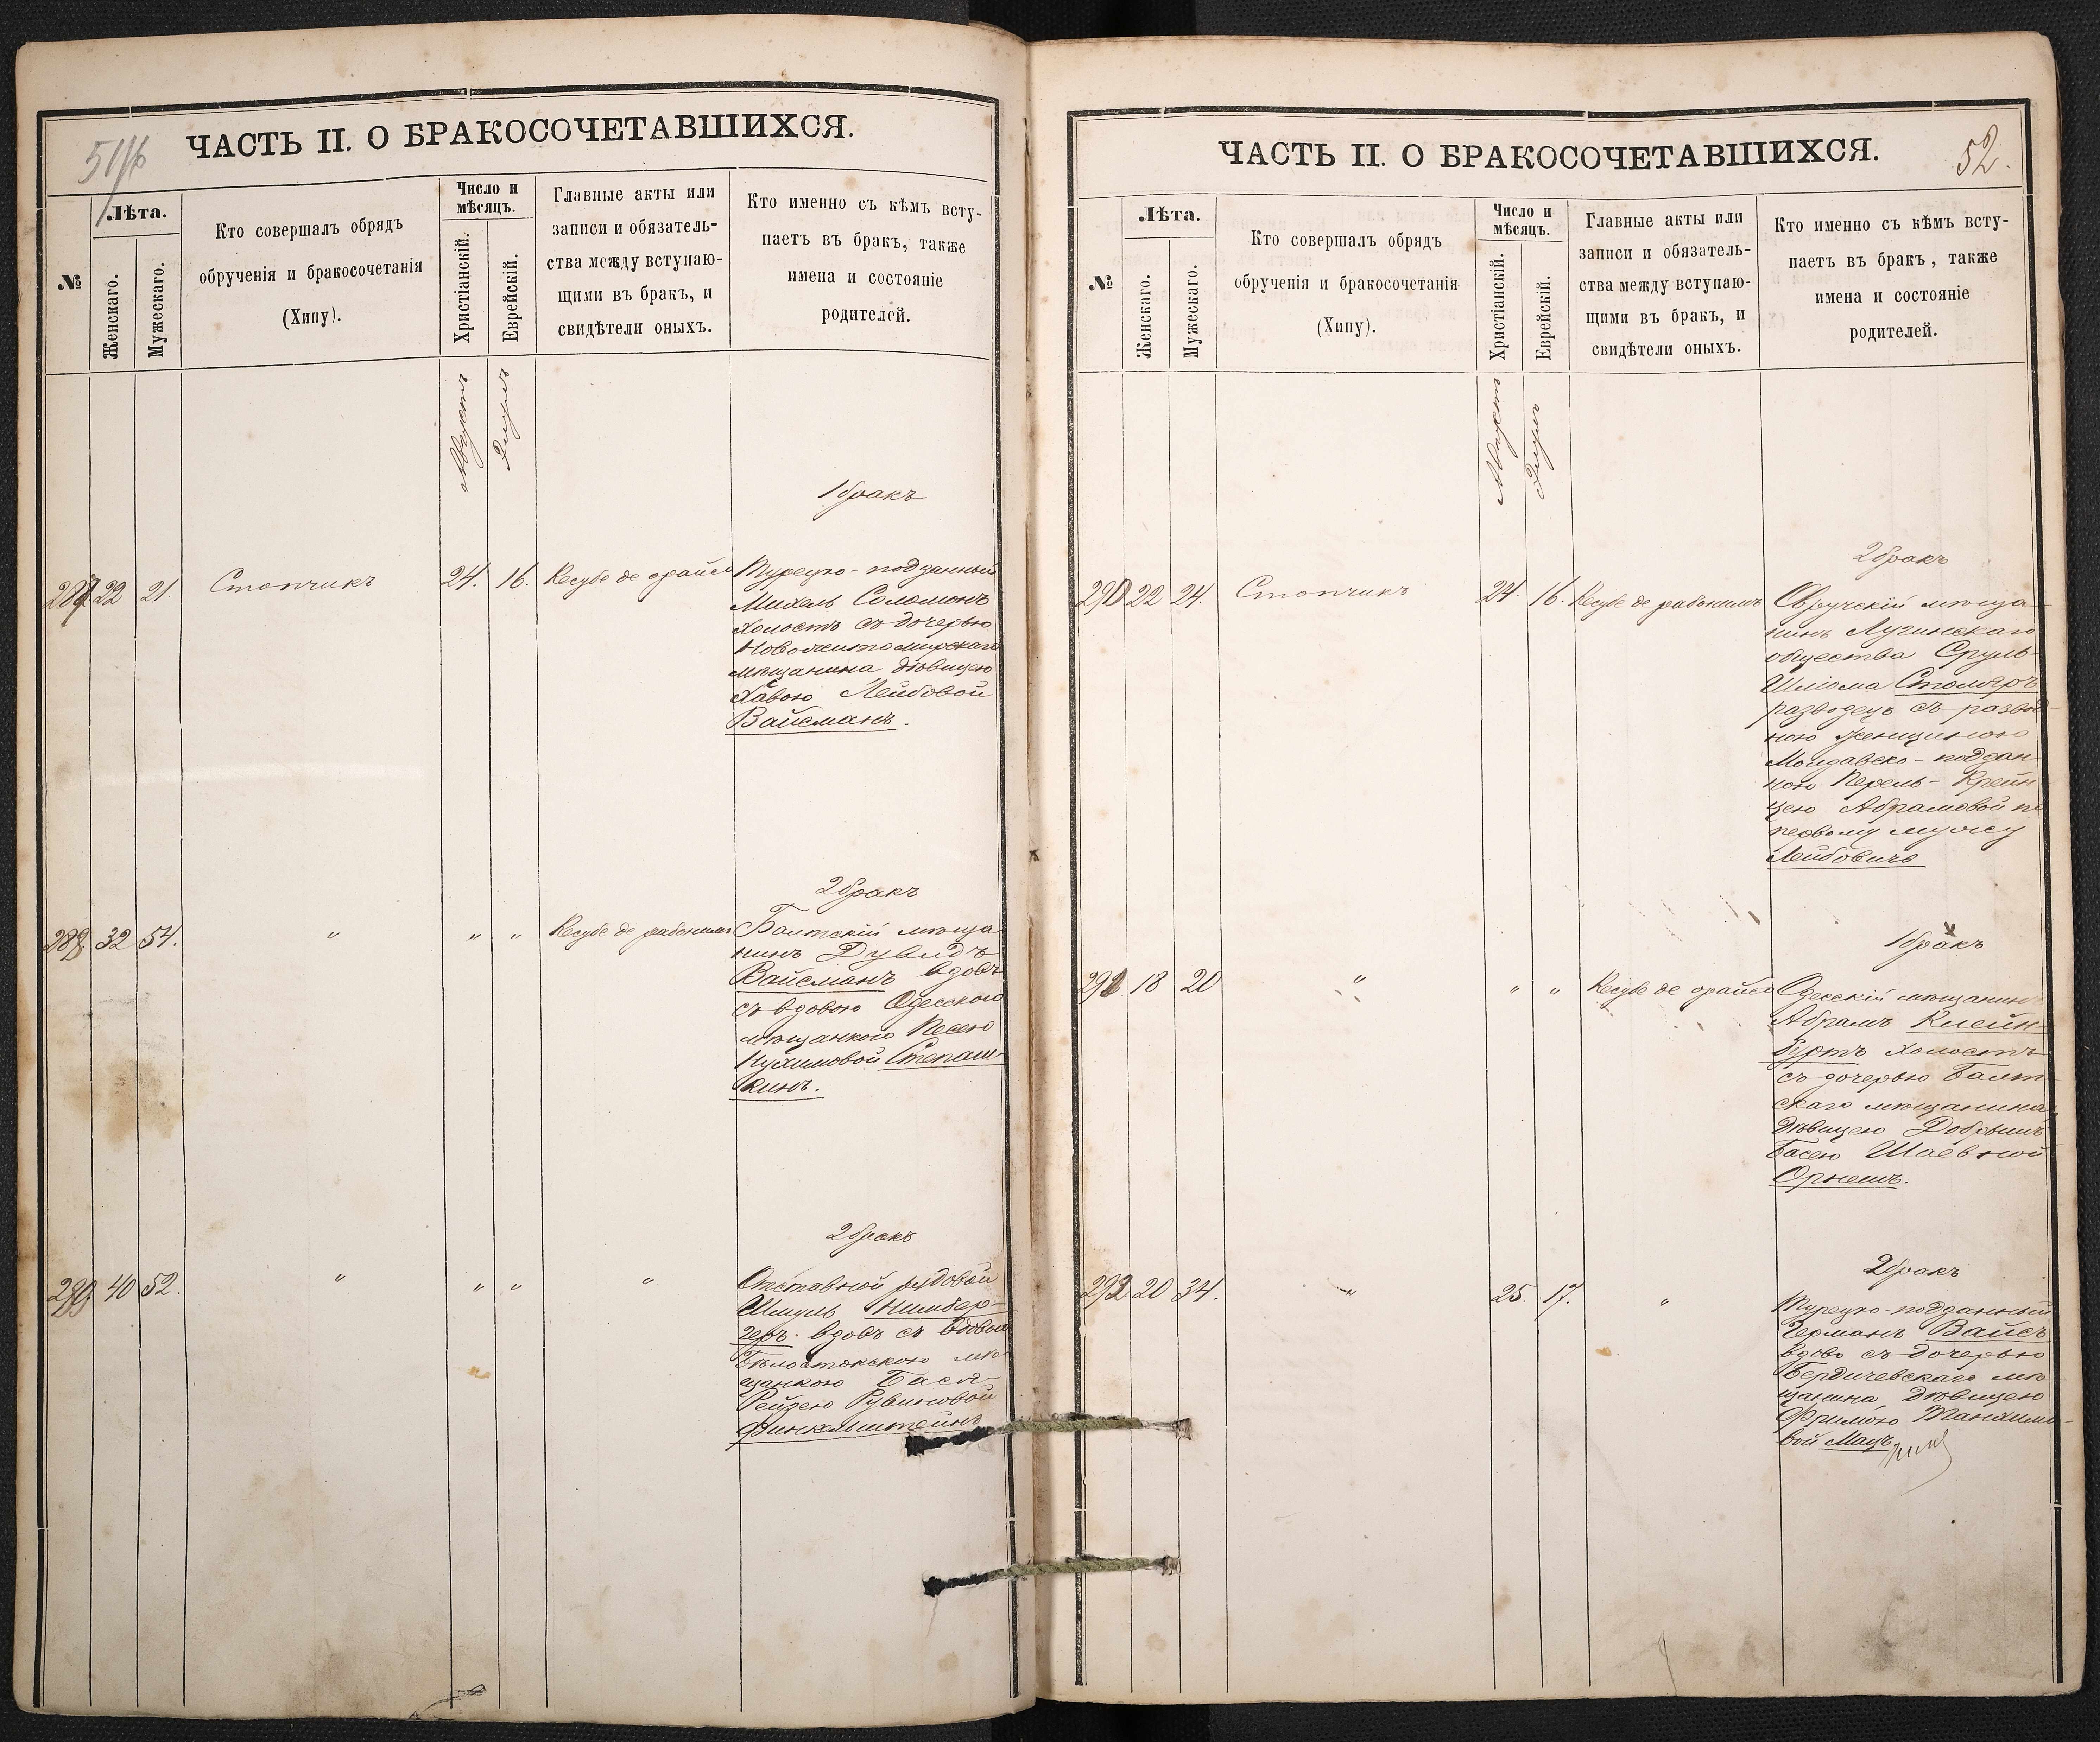 51/16
ЧАСТЬ II. О БРАКОСОЧЕТАВШИХСЯ.
№
Лѣта.
Женскаго.
Мужескаго.
Кто совершалъ обрядъ
обрученія и бракосочетанія
(Хипу).
Число и
мѣсяцъ.
Христіанскій.
Еврейскій.
Главные акты или
записи и обязатель-
ства между вступаю-
щими въ бракъ, и
свидѣтели оныхъ.
Кто именно съ кѣмъ всту-
паетъ въ бракъ, также
имена и состояніе
родителей.
Августъ
Элулъ
1 бракъ
287 22 21. Стопчикъ 24. 16. Кесубе де орайсо Турецко-подданный
Михель Соломонъ
холостъ съ дочерью
Новожитомирскаго
мѣщанина дѣвицею
Хавою Лейбовой
Вайсманъ.
2 бракъ
288. 32 54. " " " Кесубе де рабонимъ Балтскій мѣща
нинъ Дувидъ
Вайсманъ вдовъ
съ вдовою Одесскою
мѣщанкою Песею
Нухимовой Степаш-
кинъ.
2 бракъ
289. 40 52. " " " " Отставной рядовой
Шмуль Нимбер-
геръ. вдовъ съ вдовою
Бѣлостокскою мѣ-
щанкою Бася-
Рейзею Рувиновой
Финкельштейнъ
52.
ЧАСТЬ II. О БРАКОСОЧЕТАВШИХСЯ.
№
Лѣта.
Женскаго.
Мужескаго.
Кто совершалъ обрядъ
обрученія и бракосочетанія
(Хипу).
Число и
мѣсяцъ.
Христіанскій.
Еврейскій.
Главные акты или
записи и обязатель-
ства между вступаю-
щими въ бракъ, и
свидѣтели оныхъ.
Кто именно съ кѣмъ всту-
паетъ въ бракъ, также
имена и состояніе
родителей.
Августъ
Элулъ
2 бракъ
290 22 24. Стопчикъ 24. 16. Кесубе де рабонимъ Овручскій мѣща-
нинъ Лугинскаго
общества Сруль-
Шліома Столяръ
разводецъ съ развод-
ною женщиною
Молдавско-поддан-
ною Перель-Крейн-
цею Абрамовой по
первому мужу
Лейбовичъ
1 бракъ
291. 18 20 " " " Кесубе де орайсо Одесскій мѣщанинъ
Абрамъ Клейн-
бортъ холостъ
съ дочерью Балт-
скаго мѣщанина
дѣвицею Добрышъ
Басею Шаевной
Орнешъ.
2 бракъ
292 20 34. " 25. 17. " Турецко-подданный
Германъ Вайсъ
вдовъ съ дочерью
Бердичевскаго мѣ
щанина дѣвицею
Фримою Танхимо-
вой Мацъ